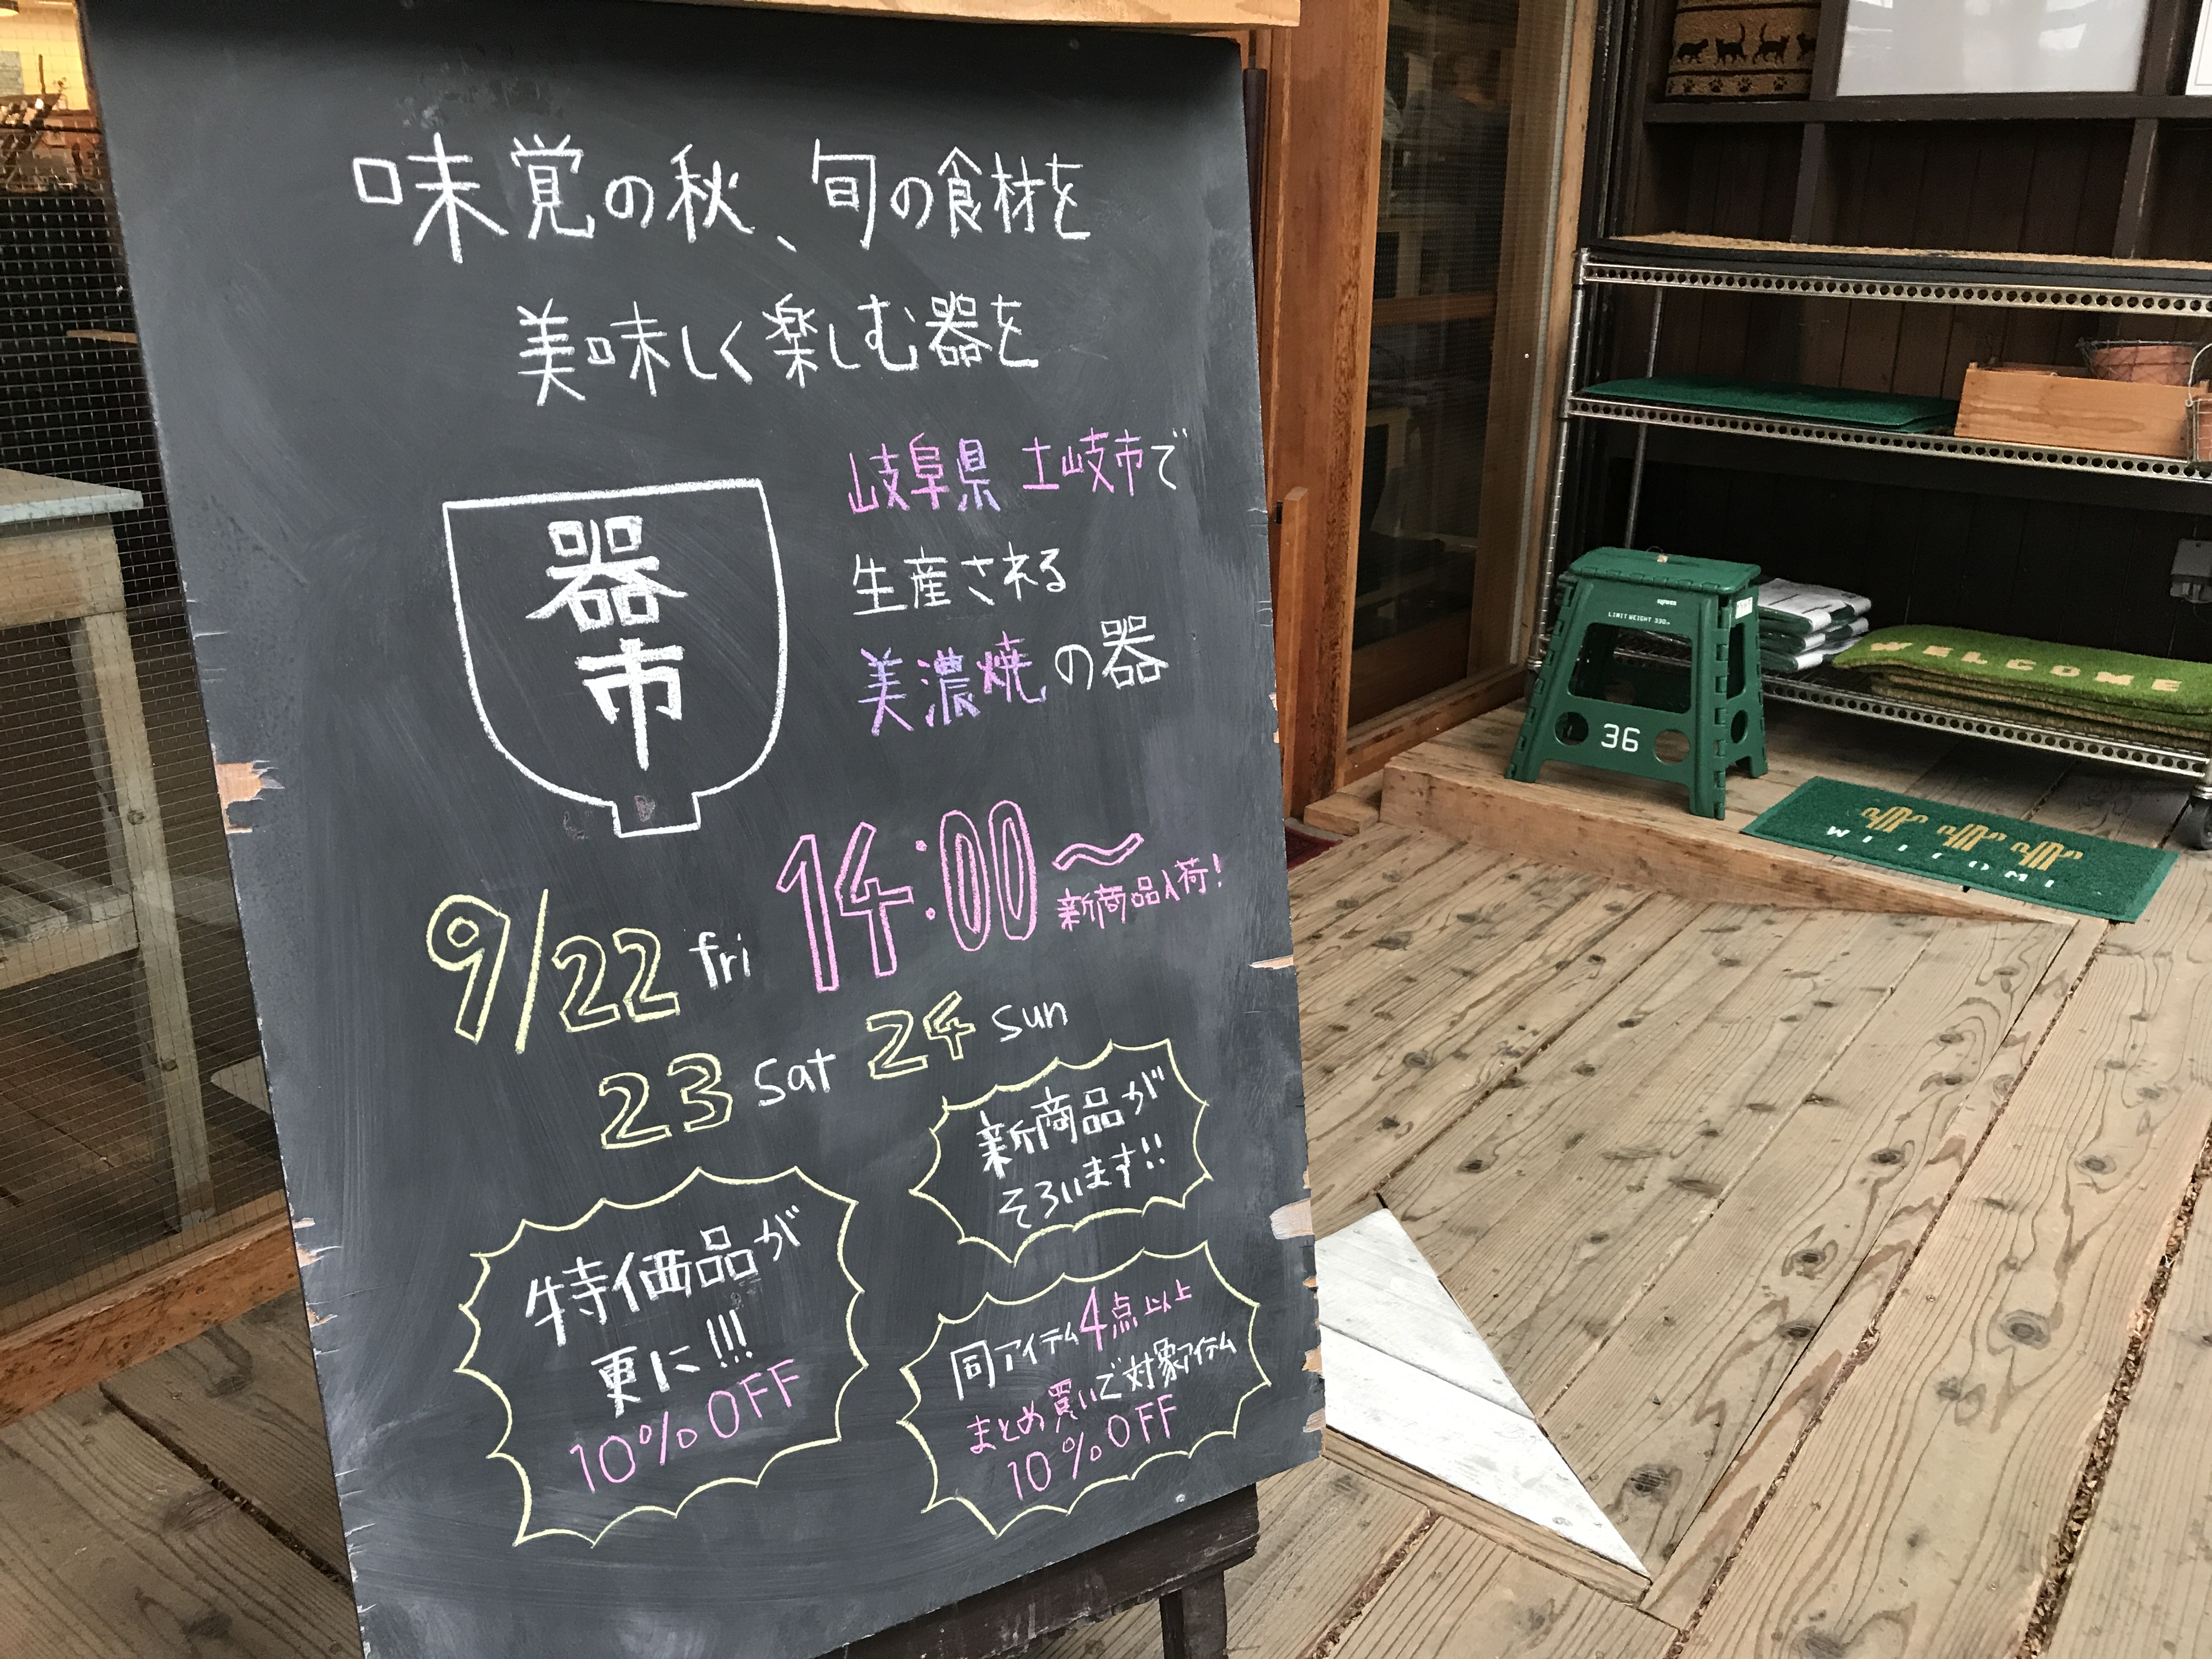 味覚の秋、旬の食材を
美味しく楽しむ器を
器市
岐阜県 土岐市で
生産される
美濃焼の器
9/22 fri 14:00〜
新商品入荷!
23 sat 24 sun
新商品が
そろいます!!
特価品が
更に!!!
10%OFF
同アイテム4点以上
まとめ買いで対象アイテム
10%OFF
36
WELCOME